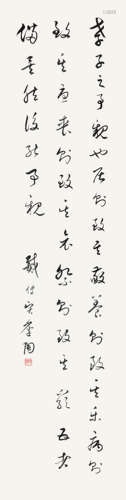 孝子之事親也居則致其敬養則致其樂病則
致其憂喪則致其哀祭則致其嚴五者
備矣然後能事親
戴傳賢季陶